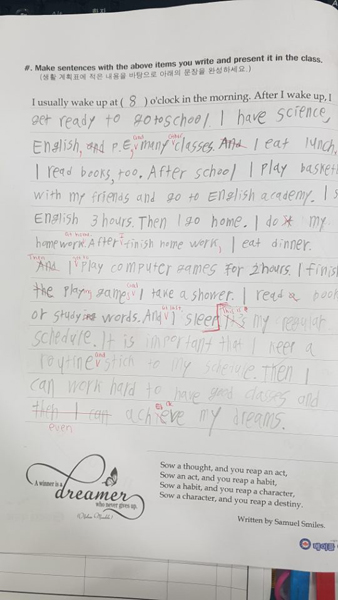 #. Make sentences with the above items you write and present it in the class.
(생활 계획표에 적은 내용을 바탕으로 아래의 문장을 완성하세요.)
I usually wake up at ( 8 ) o'clock in the morning. After I wake up, I
get ready to go to school. I have science,
English, and P.E, and many other classes. And I eat lunch,
I read books, too. After school I play basket
with my friends and go to English academy. I s
English 3 hours. Then I go home. I do my
homework. After I finish home work, I eat dinner.
Then And I play computer games for 2 hours. I finish
the play game, and I take a shower. I read a book
or studying words. And I sleep my regular
schedule. It is important that I keep a
routine and stick to my schedule. Then I
can work hard to have good classes and
then I can achieve my dreams.
even
A winner is a
dreamer
who never gives up.
(Nelson Mandela)
Sow a thought, and you reap an act,
Sow an act, and you reap a habit,
Sow a habit, and you reap a character,
Sow a character, and you reap a destiny.
Written by Samuel Smiles.